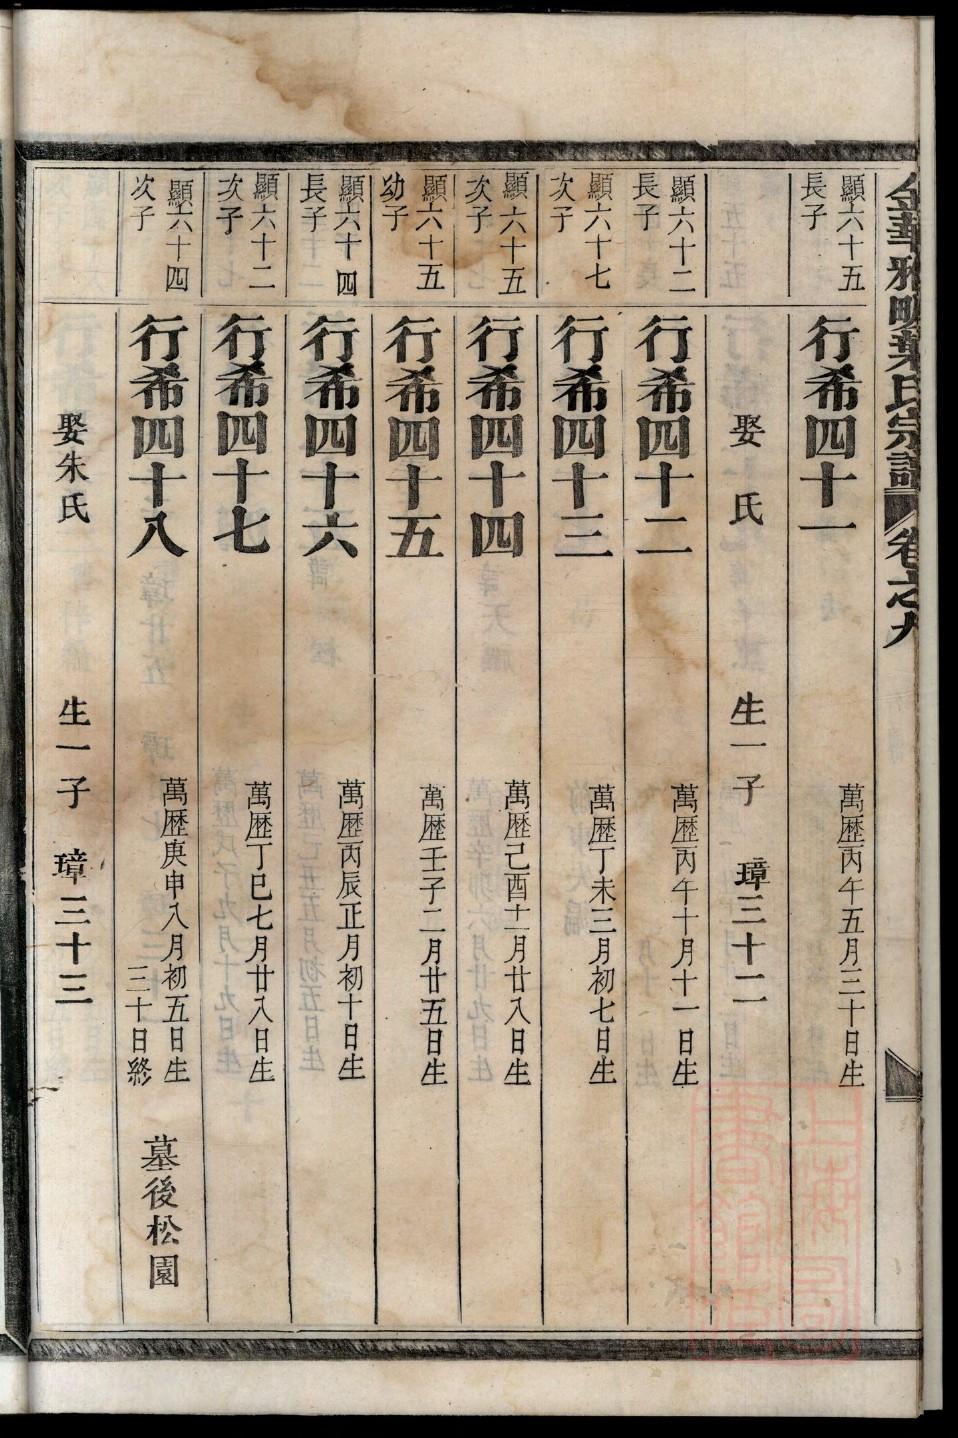 金華雅畈葉氏宗譜 卷之九
顯六十五
長子
行希四十一
萬歷丙午五月三十日生
娶 氏 生一子 璋三十二
顯六十二
長子
行希四十二
萬歷丙午十月十一日生
顯六十七
次子
行希四十三
萬歷丁未三月初七日生
顯六十五
次子
行希四十四
萬歷己酉十一月廿八日生
顯六十五
幼子
行希四十五
萬歷壬子二月廿五日生
顯六十四
長子
行希四十六
萬歷丙辰正月初十日生
顯六十二
次子
行希四十七
萬歷丁巳七月廿八日生
顯六十四
次子
行希四十八
萬歷庚申八月初五日生
三十日終
墓後松園
娶朱氏 生一子 璋三十三
上海圖書館藏